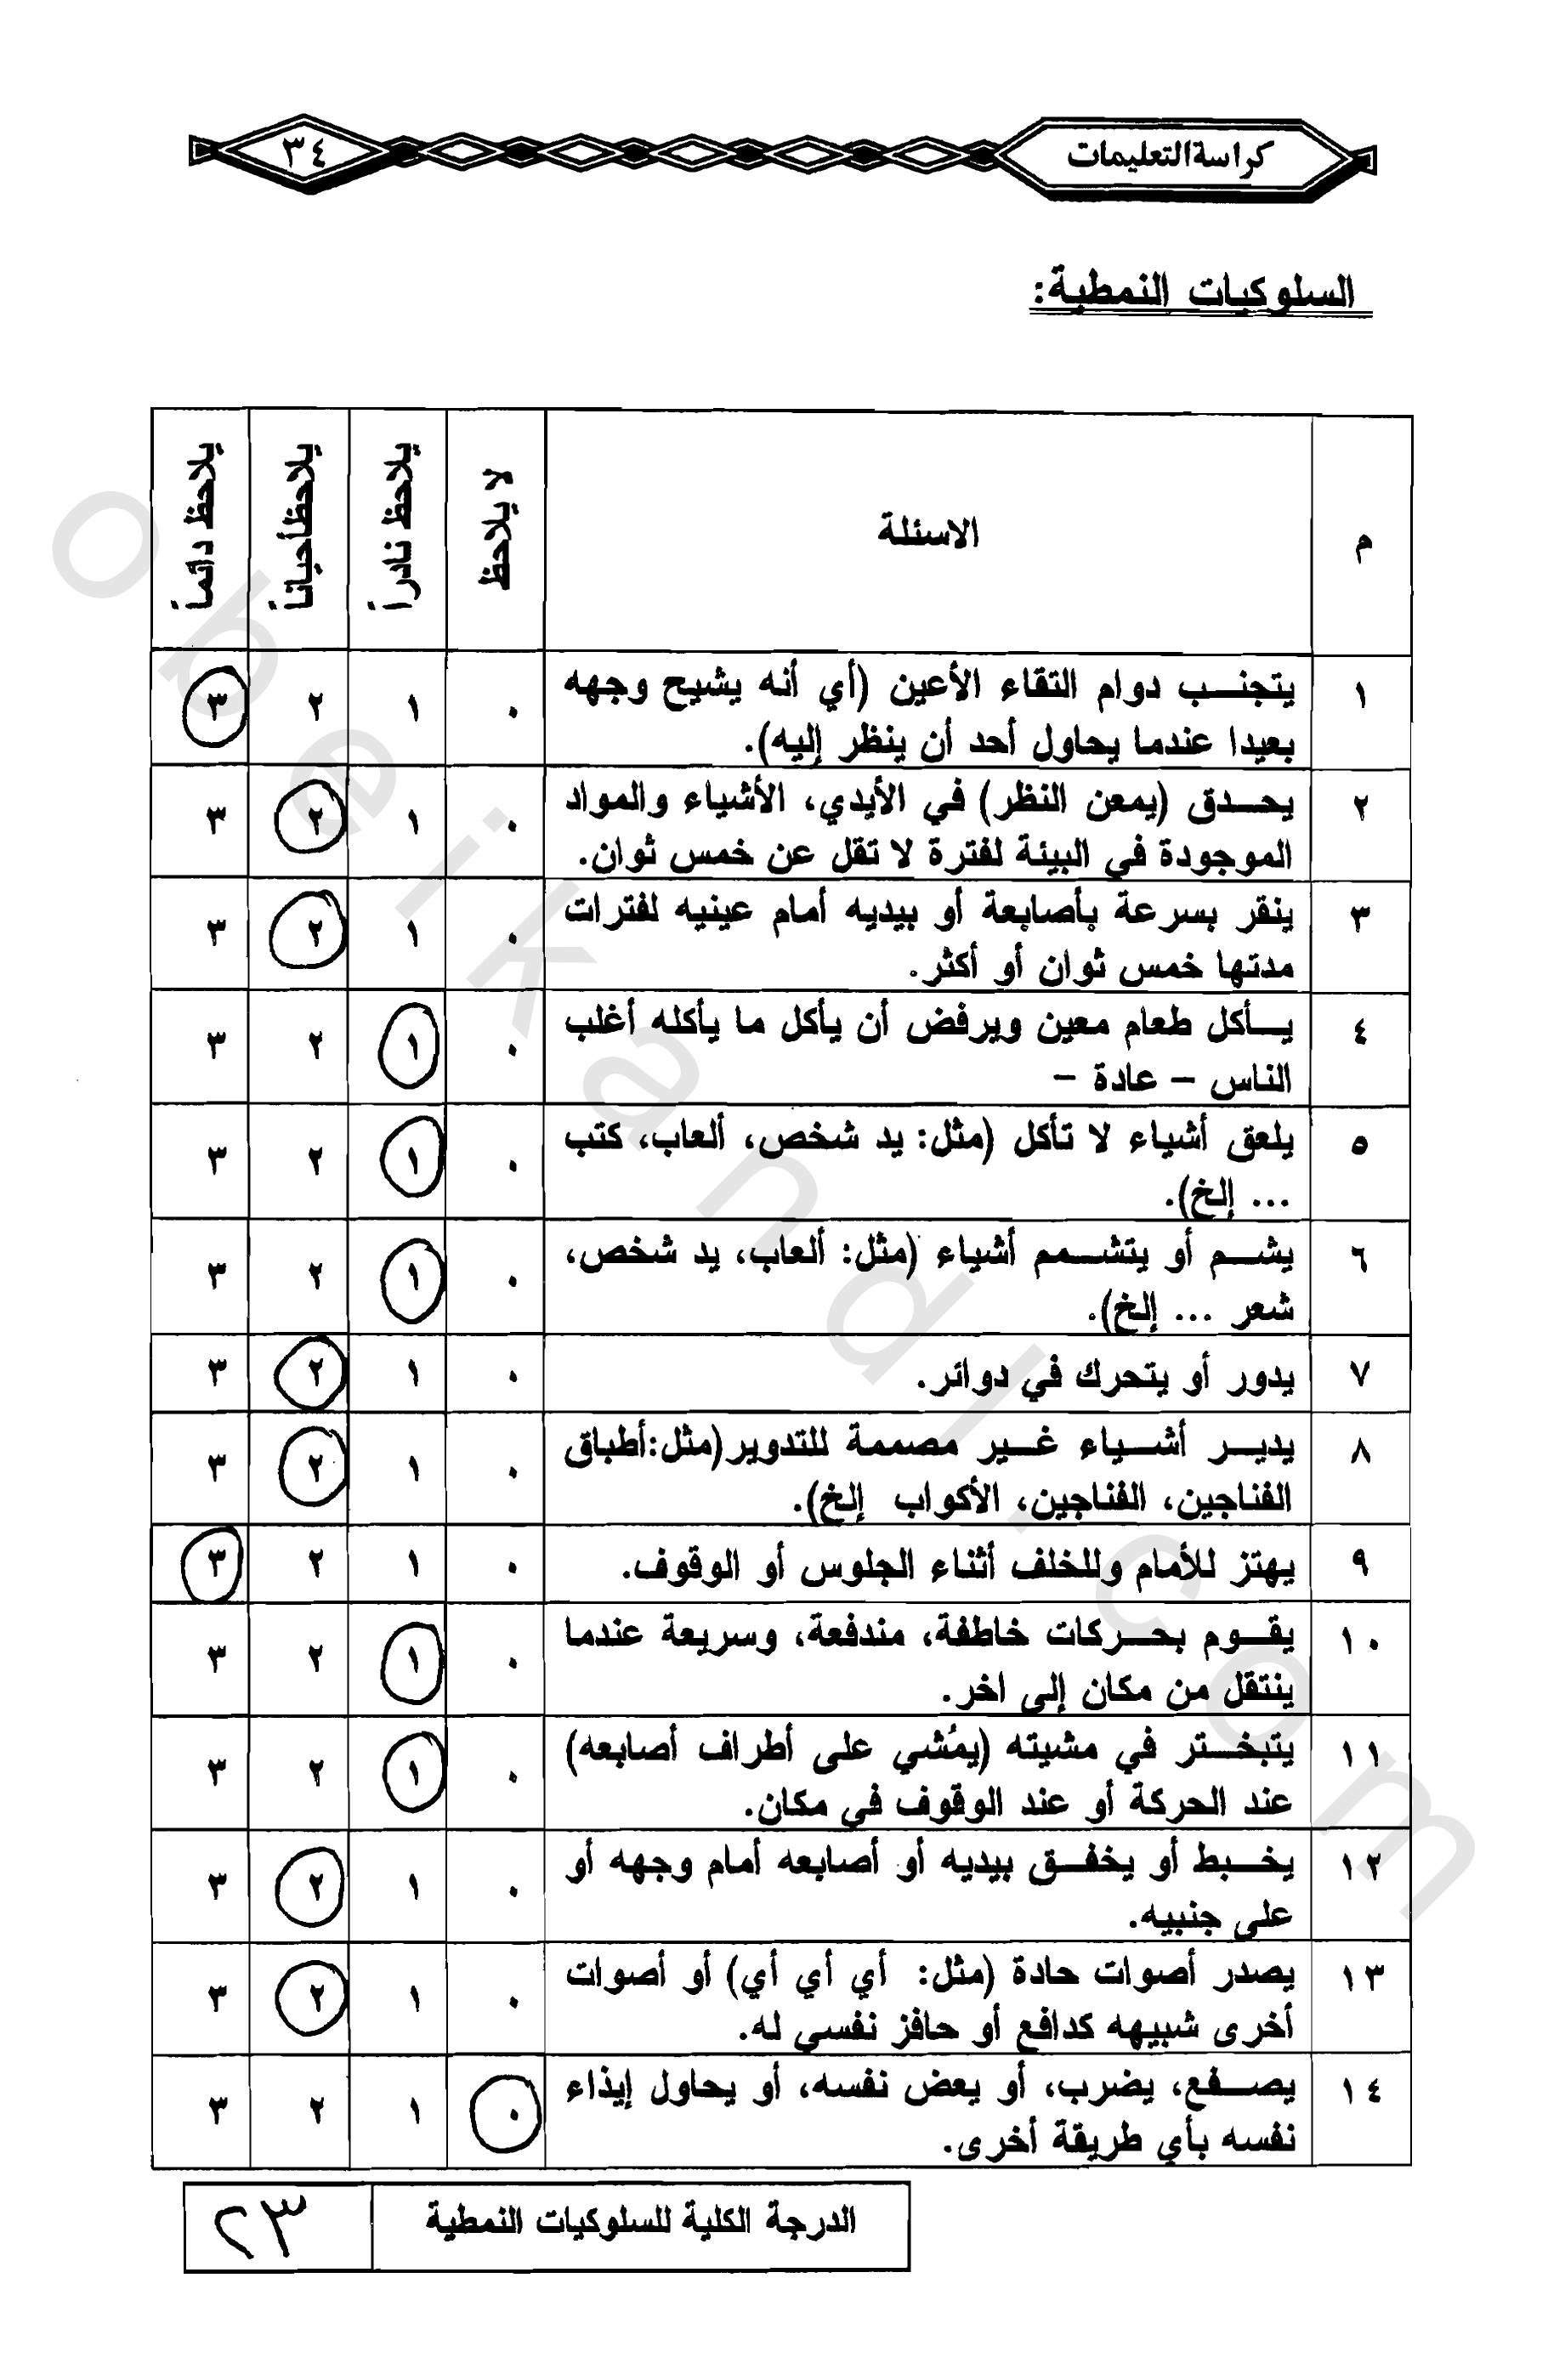 كراسة التعليمات ٣٤
السلوكيات النمطية:
م الاسئلة لا يلاحظ يلاحظ نادراً يلاحظ أحياناً يلاحظ دائماً
١ يتجنب دوام التقاء الأعين (أي أنه يشيح وجهه ٠ ١ ٢ ٣
بعيدا عندما يحاول أحد أن ينظر إليه).
٢ يحدق (يمعن النظر) في الأيدي، الأشياء والمواد ٠ ١ ٢ ٣
الموجودة في البيئة لفترة لا تقل عن خمس ثوان.
٣ ينقر بسرعة بأصابعة أو بيديه أمام عينيه لفترات ٠ ١ ٢ ٣
مدتها خمس ثوان أو أكثر.
٤ يأكل طعام معين ويرفض أن يأكل ما يأكله أغلب ٠ ١ ٢ ٣
الناس – عادة –
٥ يلعق أشياء لا تأكل (مثل: يد شخص، ألعاب، كتب ٠ ١ ٢ ٣
... إلخ).
٦ يشم أو يتشمم أشياء (مثل: ألعاب، يد شخص، ٠ ١ ٢ ٣
شعر ... إلخ).
٧ يدور أو يتحرك في دوائر. ٠ ١ ٢ ٣
٨ يدير أشياء غير مصممة للتدوير(مثل:أطباق ٠ ١ ٢ ٣
الفناجين، الفناجين، الأكواب إلخ).
٩ يهتز للأمام وللخلف أثناء الجلوس أو الوقوف. ٠ ١ ٢ ٣
١٠ يقوم بحركات خاطفة، مندفعة، وسريعة عندما ٠ ١ ٢ ٣
ينتقل من مكان إلى اخر.
١١ يتبختر في مشيته (يمُشي على أطراف أصابعه) ٠ ١ ٢ ٣
عند الحركة أو عند الوقوف في مكان.
١٢ يخبط أو يخفق بيديه أو أصابعه أمام وجهه أو ٠ ١ ٢ ٣
على جنبيه.
١٣ يصدر أصوات حادة (مثل: أي أي أي) أو أصوات ٠ ١ ٢ ٣
أخرى شبيهه كدافع أو حافز نفسي له.
١٤ يصفع، يضرب، أو يعض نفسه، أو يحاول إيذاء ٠ ١ ٢ ٣
نفسه بأي طريقة أخرى.
الدرجة الكلية للسلوكيات النمطية ٢٣
obeikandl.com